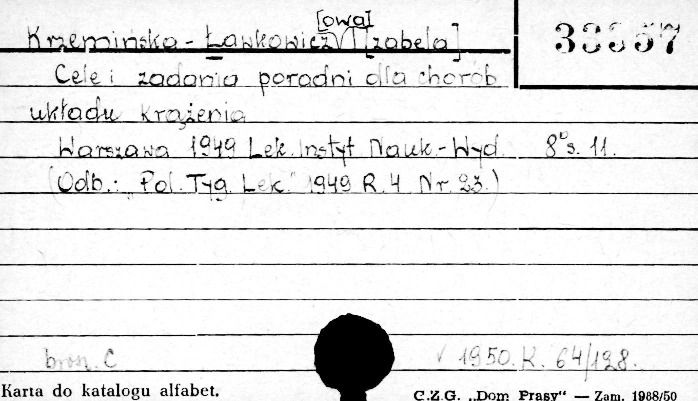 [owa]
Krzemińska-Ławkowicz I[zabela] 33357
Cele i zadania poradni dla chorób
układu krążenia
Warszawa 1949 Lek. Instyt Nauk.-Wyd. 8° s. 11.
(Odb.: "Pol. Tyg. Lek." 1949 R. 4 Nr. 23.)
brosz. C V 1950. K. 64/128.
Karta do katalogu alfabet. C.Z.G. „Dom Prasy“ — Zam. 1968/50